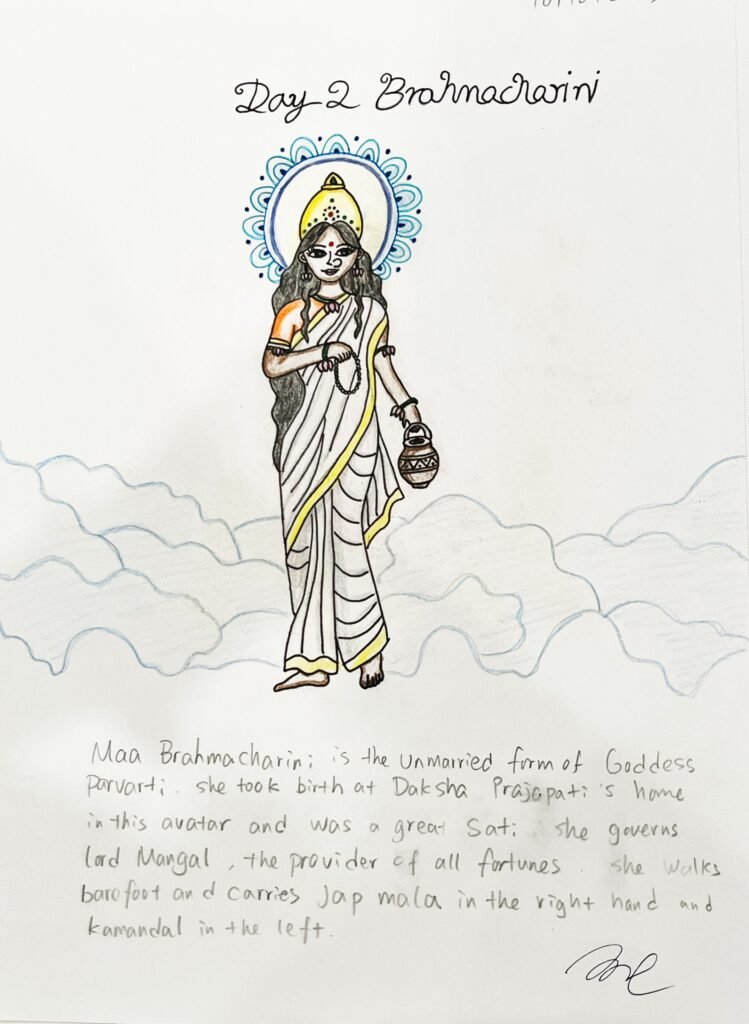 Day 2 Brahmacharini
Maa Brahmacharini is the unmarried form of Goddess
Parvarti. she took birth at Daksha Prajapati's home
in this avatar and was a great Sati. she governs
lord Mangal, the provider of all fortunes. she walks
barefoot and carries Jap mala in the right hand and
kamandal in the left.